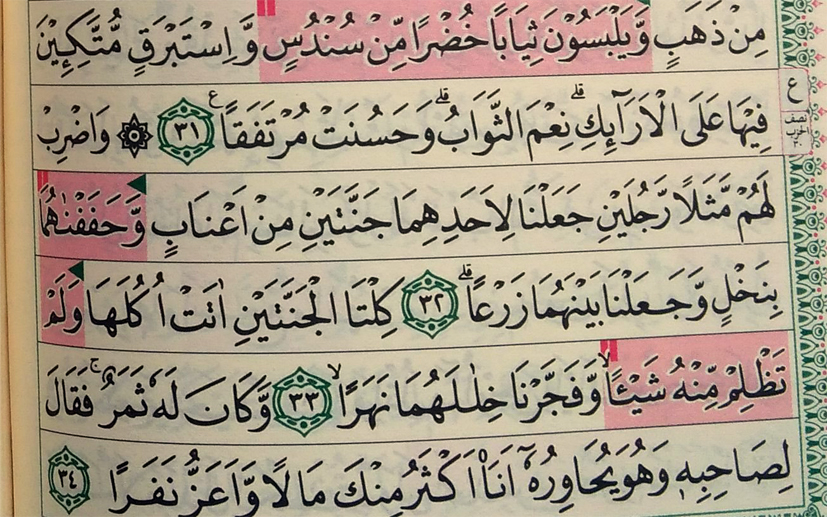 مِنْ ذَهَبٍ وَّيَلْبَسُوْنَ ثِيَابًا خُضْرًا مِّنْ سُنْدُسٍ وَّاِسْتَبْرَقٍ مُّتَّكِـِٕيْنَ
فِيْهَا عَلَى الْاَرَاۤىِٕكِۗ نِعْمَ الثَّوَابُۗ وَحَسُنَتْ مُرْتَفَقًا ࣖ ٣١ ۞ وَاضْرِبْ
ع
نصف الحزب ٣٠
لَهُمْ مَّثَلًا رَّجُلَيْنِ جَعَلْنَا لِاَحَدِهِمَا جَنَّتَيْنِ مِنْ اَعْنَابٍ وَّحَفَفْنٰهُمَا
بِنَخْلٍ وَّجَعَلْنَا بَيْنَهُمَا زَرْعًاۗ ٣٢ كِلْتَا الْجَنَّتَيْنِ اٰتَتْ اُكُلَهَا وَلَمْ
تَظْلِمْ مِّنْهُ شَيْـًٔاۙ وَّفَجَّرْنَا خِلٰلَهُمَا نَهَرًاۙ ٣٣ وَّكَانَ لَهٗ ثَمَرٌۚ فَقَالَ
لِصَاحِبِهٖ وَهُوَ يُحَاوِرُهٗٓ اَنَا۠ اَكْثَرُ مِنْكَ مَالًا وَّاَعَزُّ نَفَرًا ٣٤